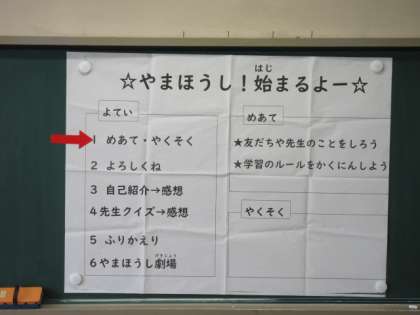 ☆やまほうし！始まるよー☆
はじ
よてい
1 めあて・やくそく
2 よろしくね
3 自己紹介→感想
4 先生クイズ→感想
5 ふりかえり
6 やまほうし劇場
げきじょう
めあて
★友だちや先生のことをしろう
★学習のルールをかくにんしよう
やくそく